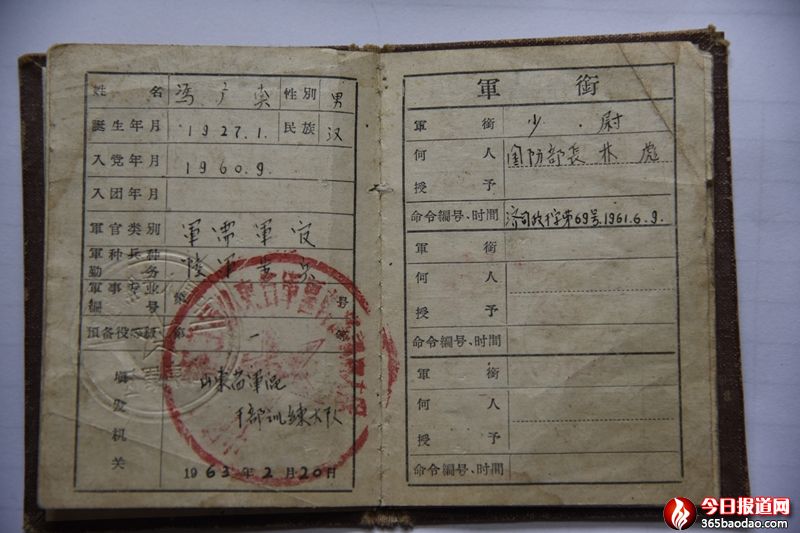 姓名 冯广典 性别 男
誕生年月 1927.1. 民族 汉
入党年月 1960.9.
入团年月
軍官类別 軍需軍官
軍种兵种
勤务
軍事专业 号
編号
預备役等級 第一
填发机关 山東省軍區
干部訓練大队
1963年2月20日
軍銜
軍銜 少尉
何人授予 国防部長林彪
命令編号、时間 济司政干字第69号.1961.6.9.
軍銜
何人授予
命令編号、时間
軍銜
何人授予
命令編号、时間
今日报道网
365baodao.com